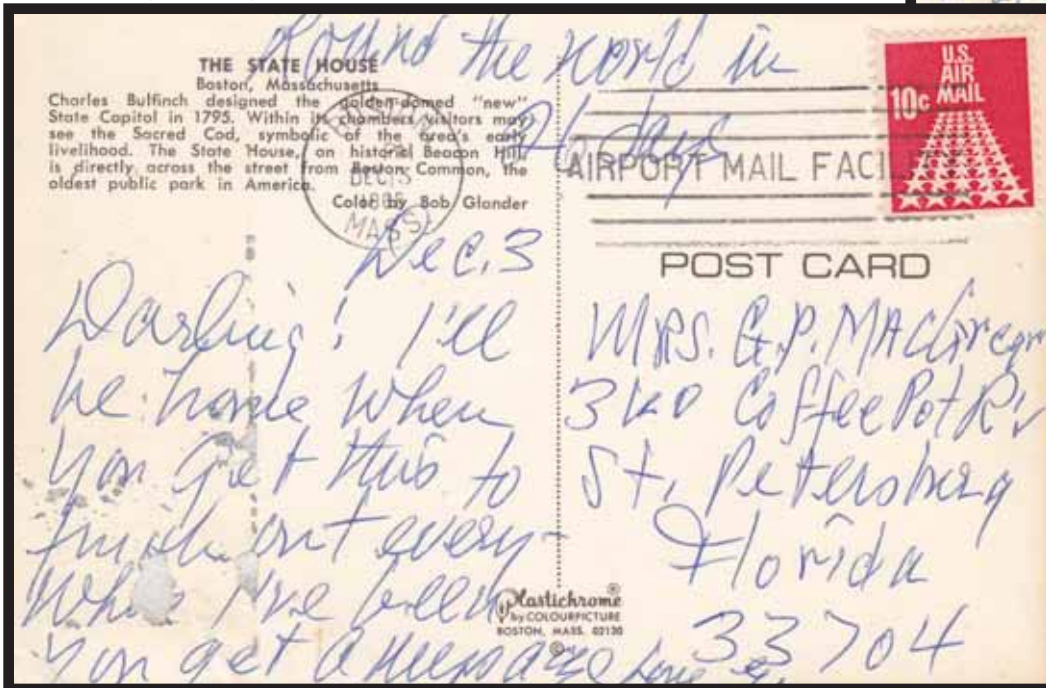 Round the World in
21 days
THE STATE HOUSE
Boston, Massachusetts
Charles Bulfinch designed the golden-domed "new"
State Capitol in 1795. Within its chambers visitors may
see the Sacred Cod, symbolic of the area's early
livelihood. The State House, on historic Beacon Hill,
is directly across the street from Boston Common, the
oldest public park in America.
Color by Bob Glander
DEC 3
MASS
AIRPORT MAIL FACIL
U.S.
AIR
MAIL
10c
Dec. 3
Darling! I'll
be home when
you get this to
out every-
where I've been
You get a message Love
POST CARD
MRS. G.P. MacGregor
Coffee Pot
St. Petersburg
Florida
33704
Plastichrome®
by COLOURPICTURE
BOSTON, MASS. 02130
©